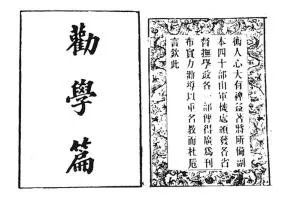 術人心大有裨益著將所備副
本四十部由軍機處頒發各省
督撫學政各一部俾得廣為刊
布實力勸導以重名教而杜卮
言欽此
勸學篇